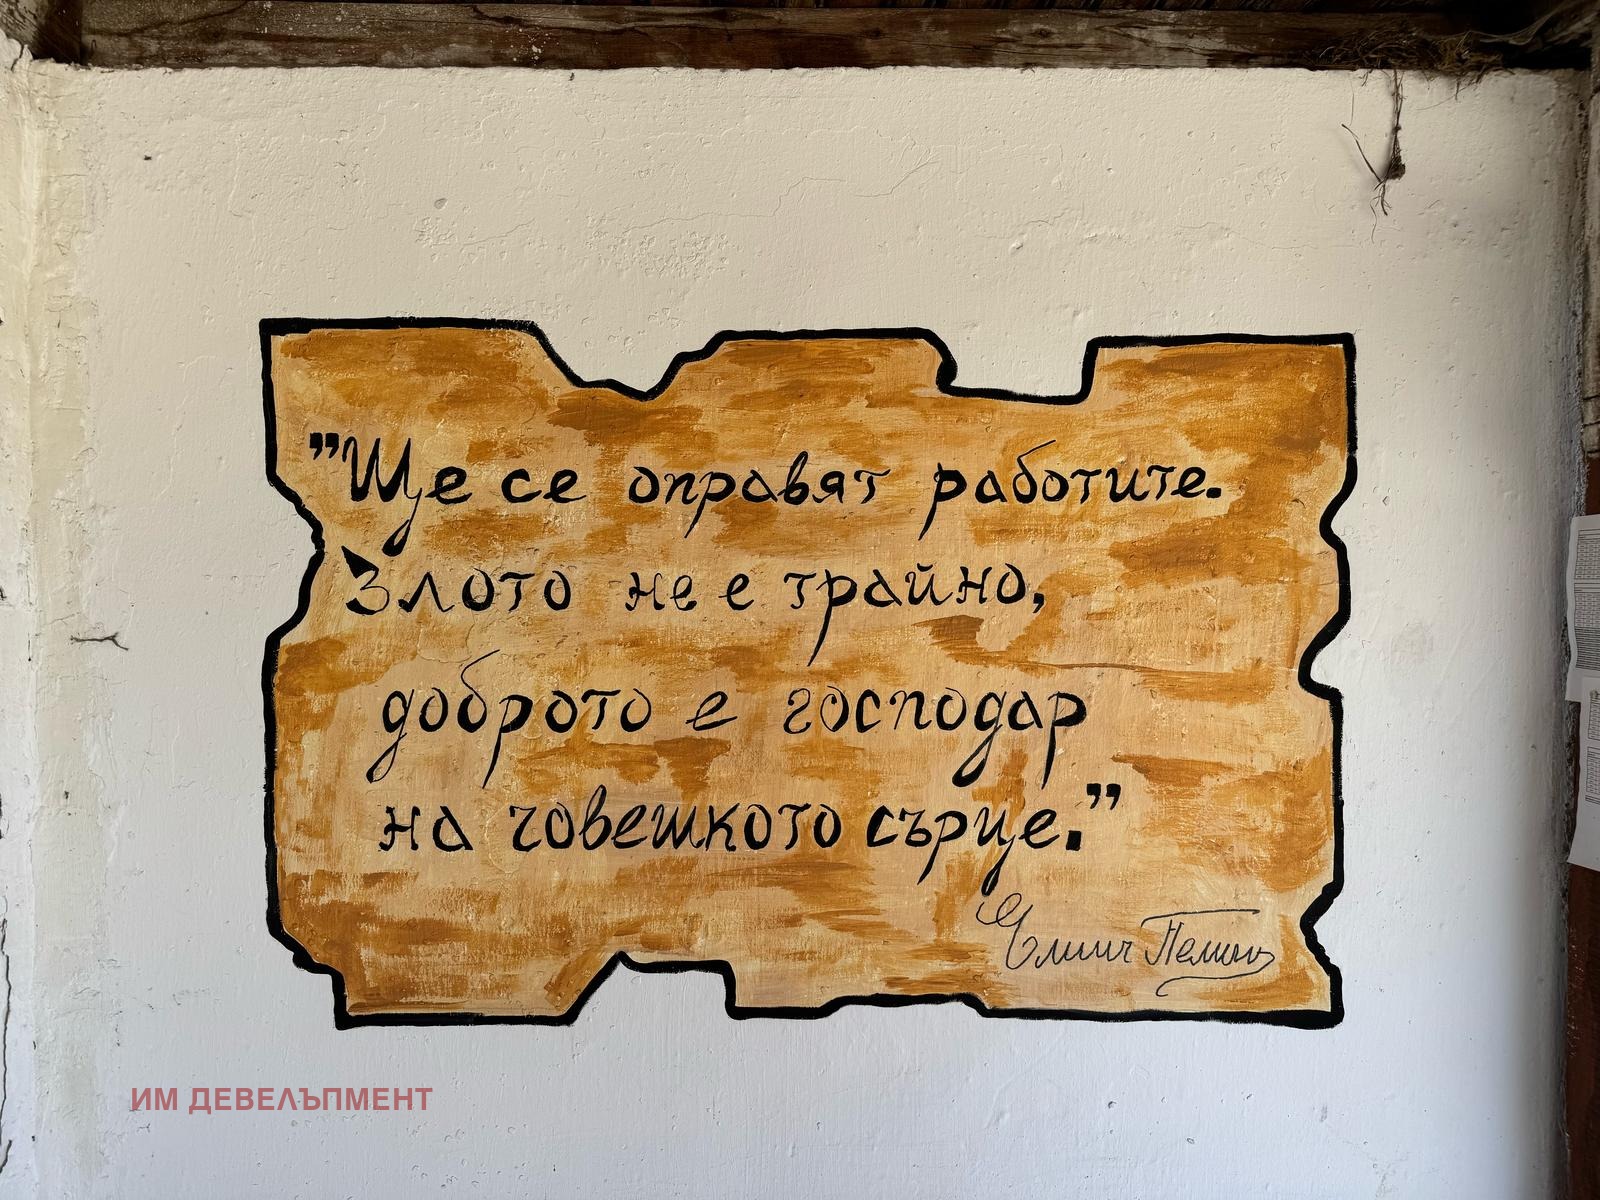 "Ще се оправят работите.
Злото не е трайно,
доброто е господар
на човешкото сърце."
Елин Пелин
ИМ ДЕВЕЛЪПМЕНТ